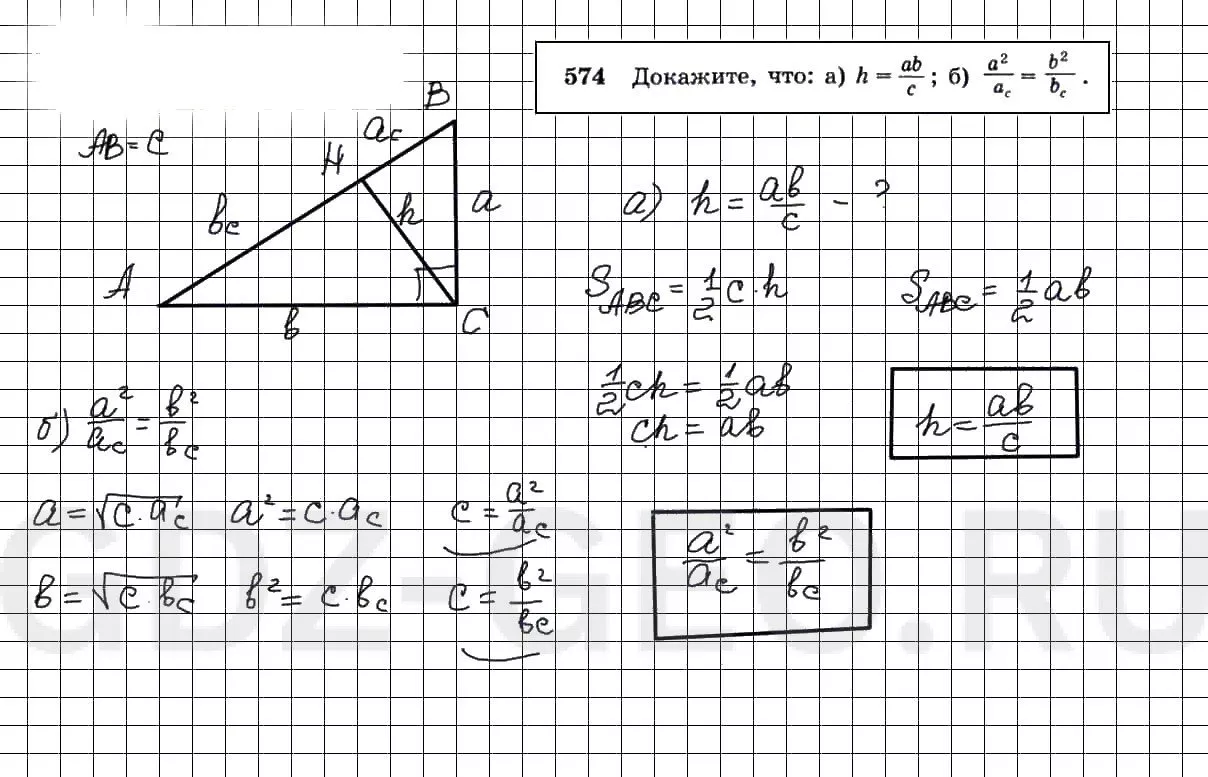 574 Докажите, что: а) h = ab/c; б) a²/a_c = b²/b_c.
AB = c
B
a_c
H
b_c
h
a
A
b
C
а) h = ab/c - ?
S_ABC = 1/2 c·h
S_ABC = 1/2 ab
1/2 ch = 1/2 ab
ch = ab
h = ab/c
б) a²/a_c = b²/b_c
a = √c·a_c a² = c·a_c c = a²/a_c
b = √c·b_c b² = c·b_c c = b²/b_c
a²/a_c = b²/b_c
GDZ-GEO.RU